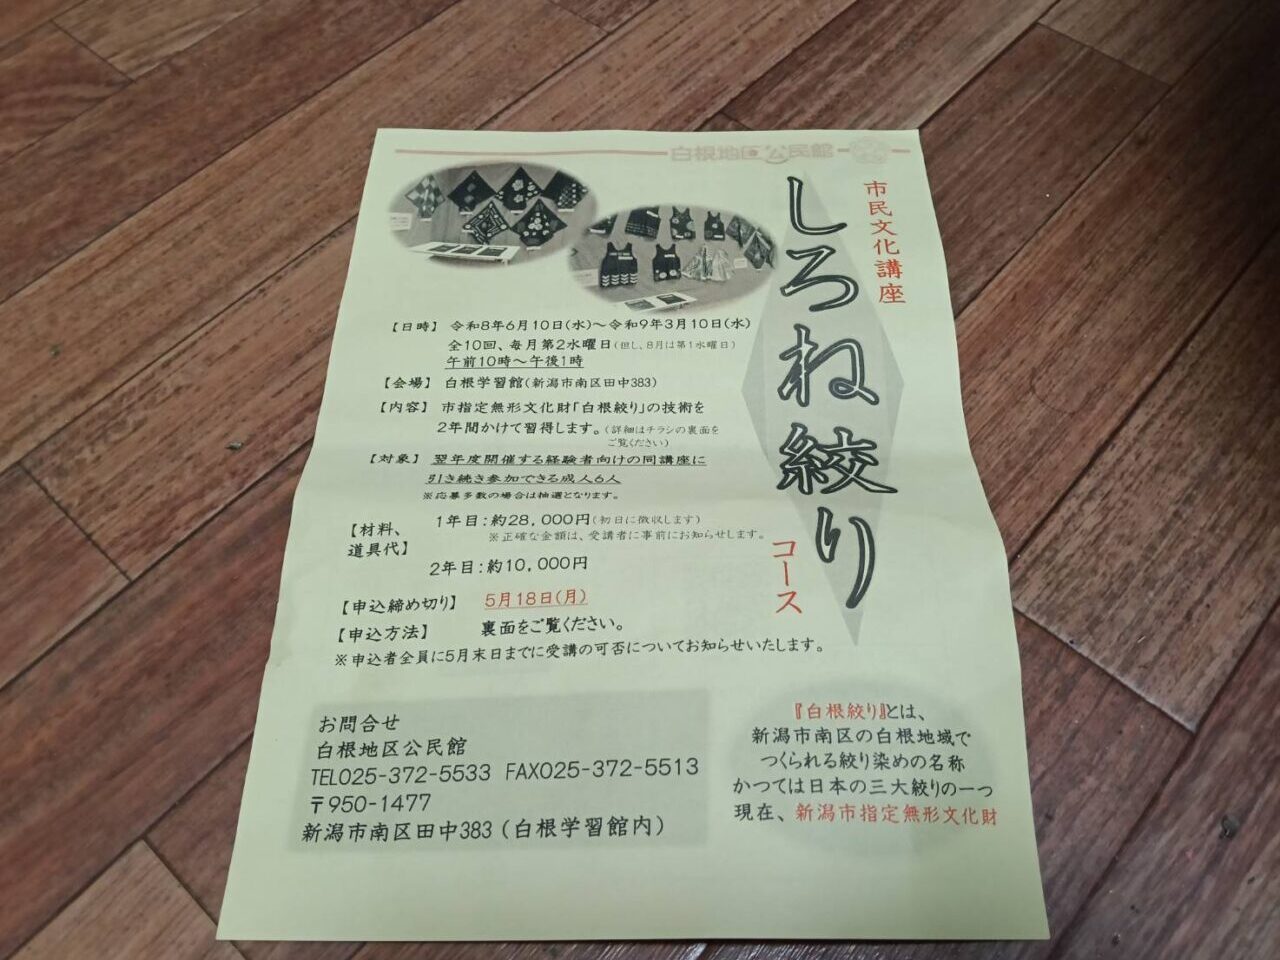 白根地区公民館
市民文化講座
しろね絞り
コース
【日時】 令和8年6月10日(水)～令和9年3月10日(水)
全10回、毎月第2水曜日(但し、8月は第1水曜日)
午前10時～午後1時
【会場】 白根学習館(新潟市南区田中383)
【内容】 市指定無形文化財「白根絞り」の技術を
2年間かけて習得します。(詳細はチラシの裏面を
ご覧ください)
【対象】 翌年度開催する経験者向けの同講座に
引き続き参加できる成人6人
※応募多数の場合は抽選となります。
【材料、
道具代】
1年目:約28,000円(初日に徴収します)
※正確な金額は、受講者に事前にお知らせします。
2年目:約10,000円
【申込締め切り】 5月18日(月)
【申込方法】 裏面をご覧ください。
※申込者全員に5月末日までに受講の可否についてお知らせいたします。
お問合せ
白根地区公民館
TEL025-372-5533 FAX025-372-5513
〒950-1477
新潟市南区田中383(白根学習館内)
『白根絞り』とは、
新潟市南区の白根地域で
つくられる絞り染めの名称
かつては日本の三大絞りの一つ
現在、新潟市指定無形文化財